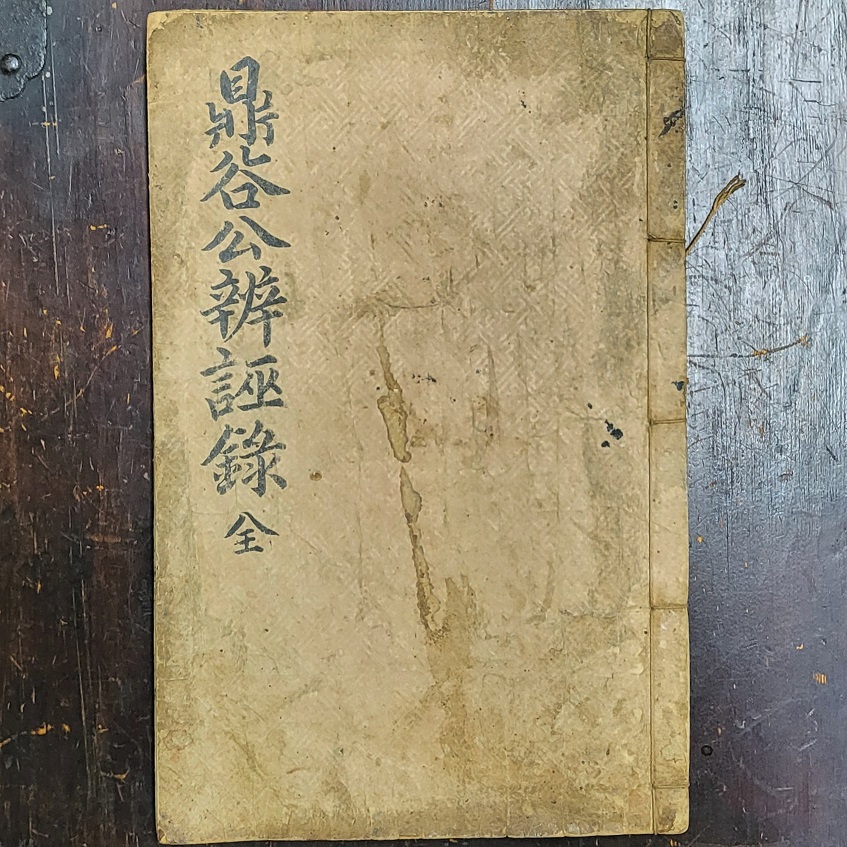 鼎谷公辨誣錄 全